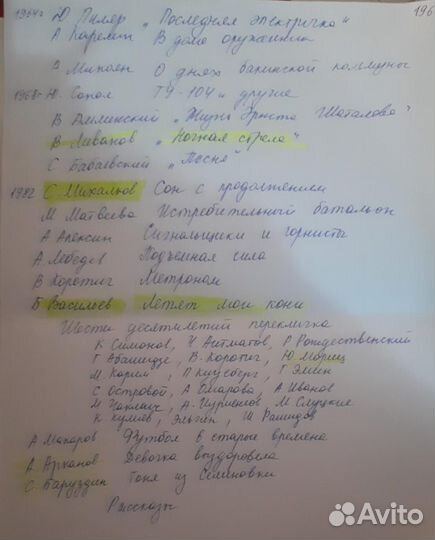 1964г Д Пиляр „Последняя электричка"
196
А Карелин В доме оружейника
В Микоян О днях бакинской коммуны
1968г Ю. Сотол ТУ-104 и другие
В Амлинский „Жизнь Эрнста Шаталова"
В Ливанов „Ночная стрела"
С Бабаевский „Песня"
1982 С Михалков Сон с продолжением
М Матвеева Истребительный батальон
А Алексин Сигнальщики и горнисты
А Лебедев Подъемная сила
В Коротич Метроном
Б Васильев Летят мои кони
Шести десятилетий перекличка
К Симонов, Ч Айтматов, Р Рождественский
Г Абашидзе, В. Коротич, Ю Мориц
М. Карим, П Кнусберг, Г Эмин
С Островой, А Омарова, А Иванов
М Танк, А. М Слуцкис
К Кулиев, Эльчин, Ш Рашидов
А Макаров Футбол в старые времена
А. Арканов Девочка выздоровела
С. Баруздин Тоня из Семеновки
Рассказы
Avito